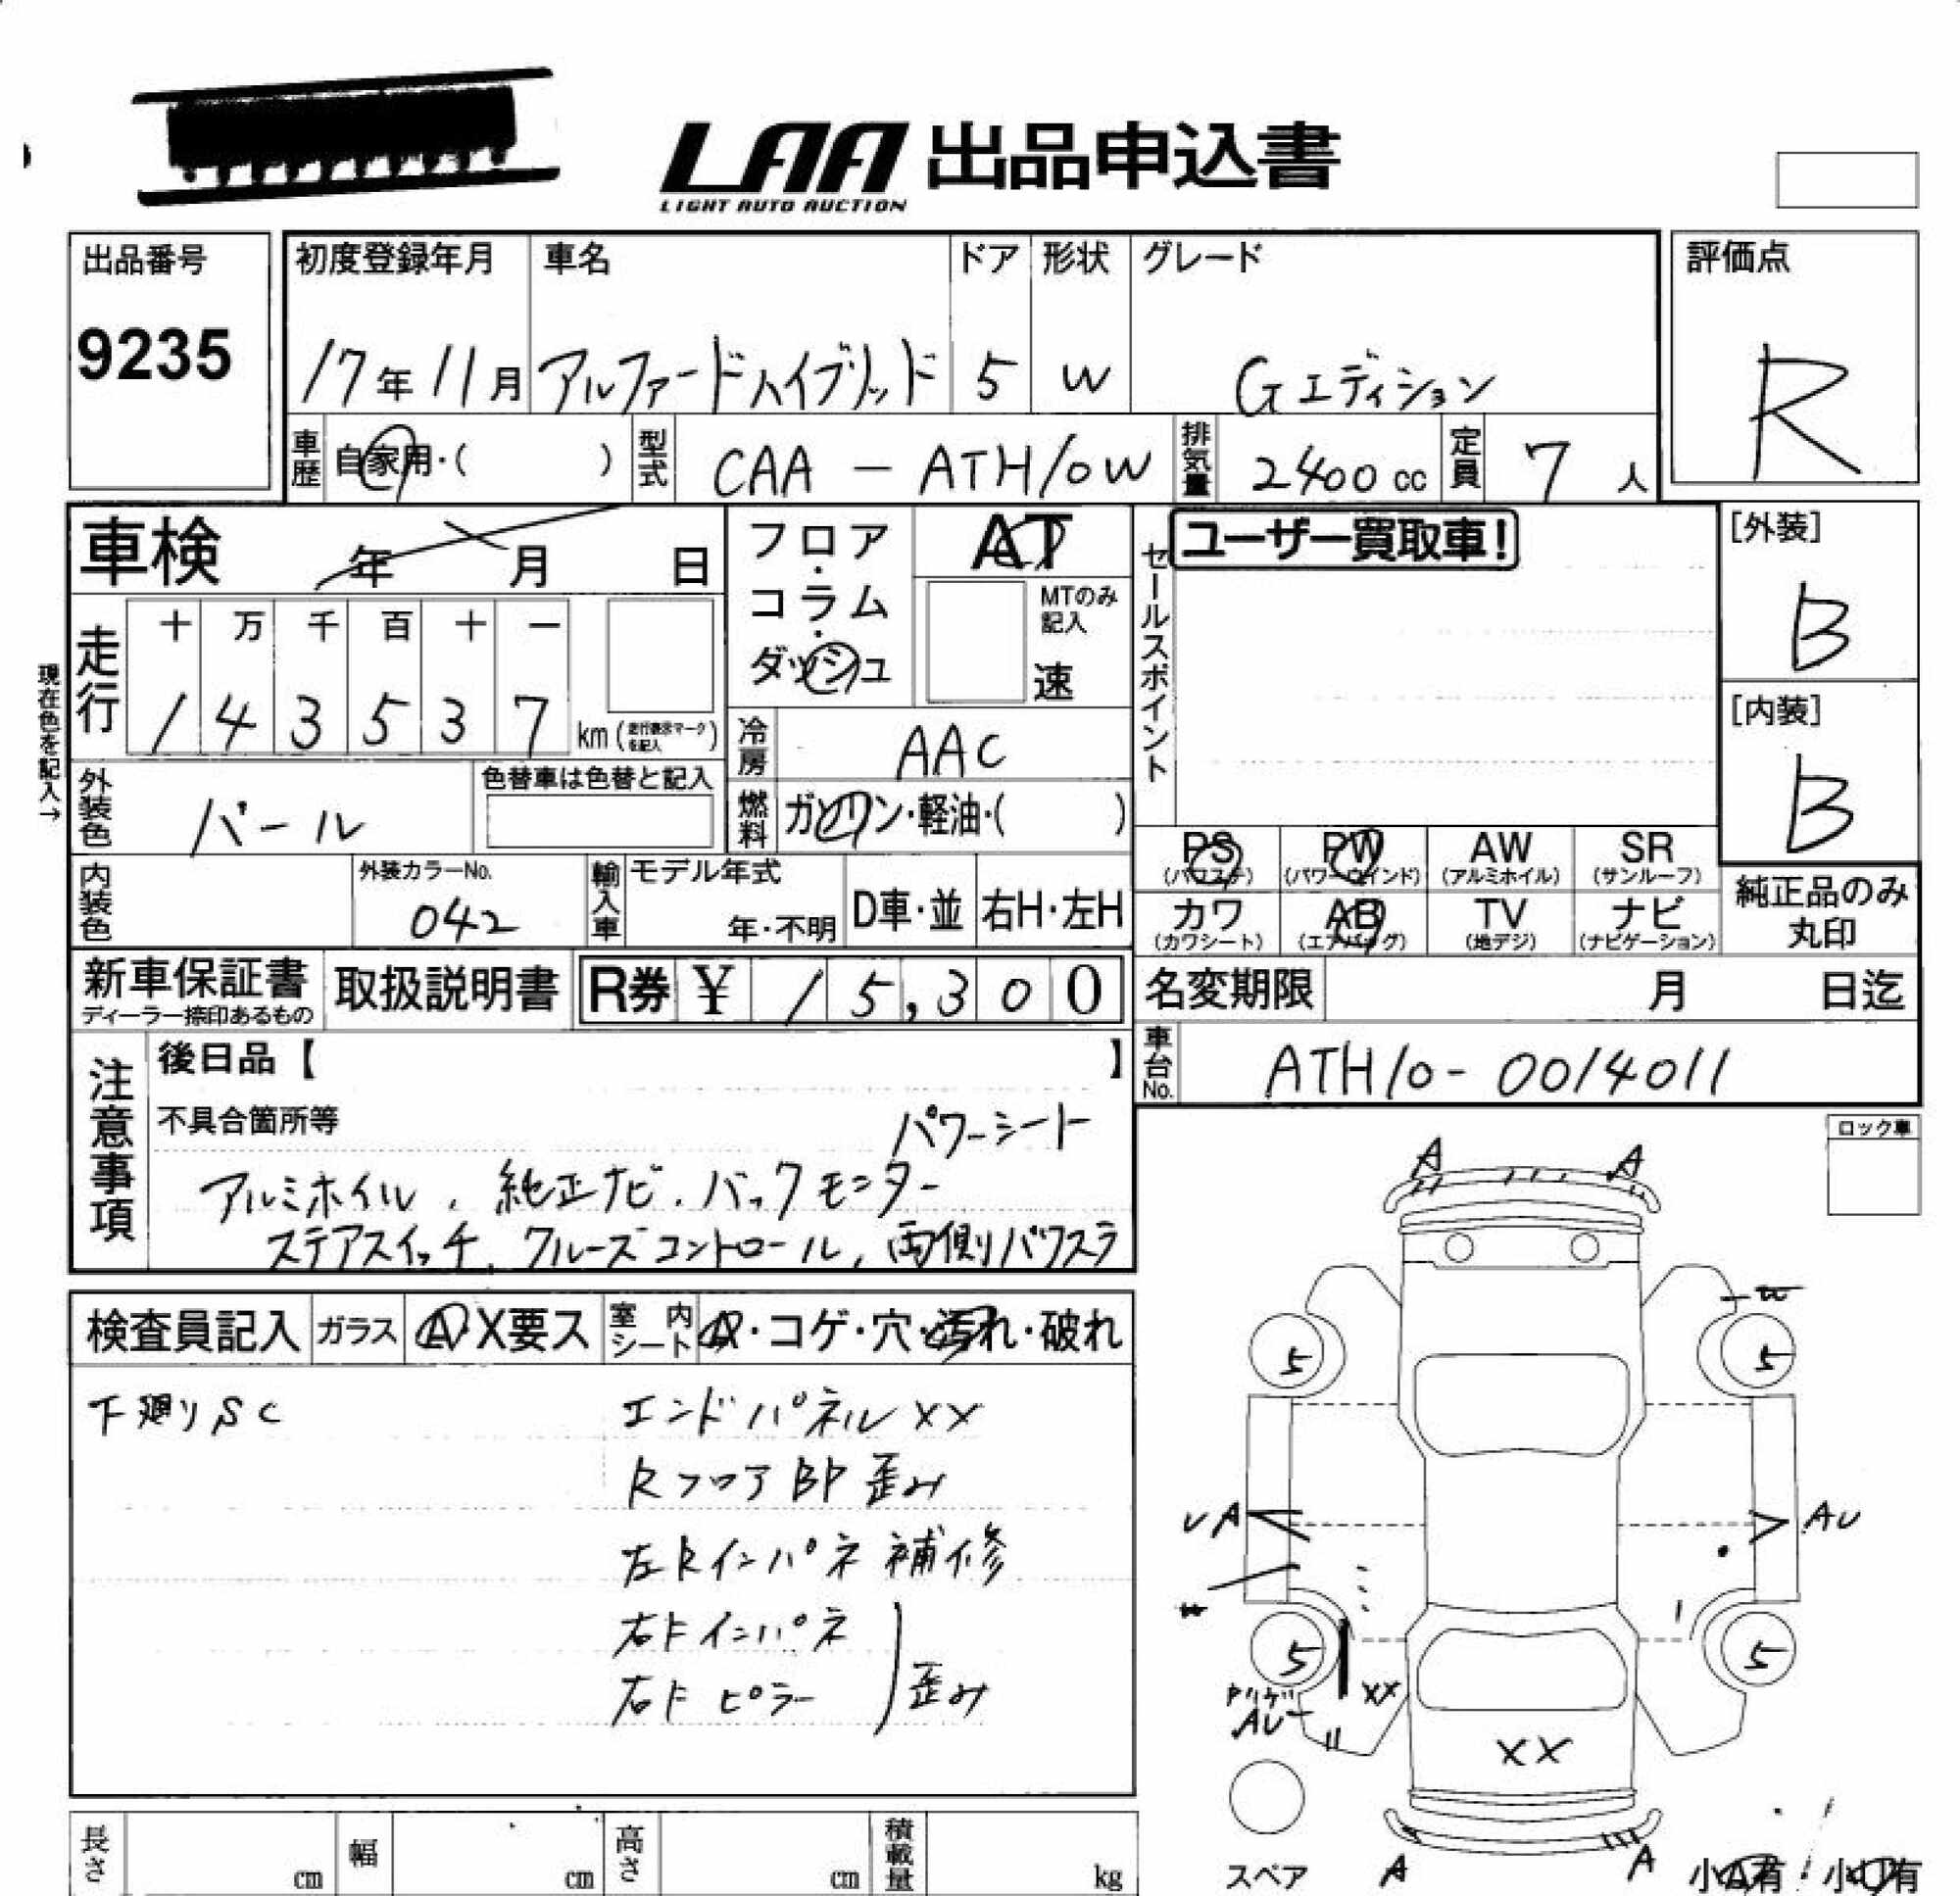 LAA 出品申込書
LIGHT AUTO AUCTION
出品番号
9235
初度登録年月
17年11月
車名
アルファードハイブリッド
ドア
5
形状
W
グレード
Gエディション
評価点
R
車歴
自家用・( )
型式
CAA - ATH10W
排気量
2400 cc
定員
7 人
車検 年 月 日
フロア・コラム・ダッシュ
AT
MTのみ記入
速
セールスポイント
ユーザー買取車!
[外装]
B
[内装]
B
現在色を記入→
走行
十 万 千 百 十 一
1 4 3 5 3 7 km (走行表示マークを記入)
冷房
AAC
燃料
ガソリン・軽油・( )
外装色
パール
色替車は色替と記入
内装色
外装カラーNo.
042
輸入車
モデル年式
年・不明
D車・並
右H・左H
PS (パワステ)
PW (パワーウインド)
AW (アルミホイル)
SR (サンルーフ)
カワ (カワシート)
AB (エアバッグ)
TV (地デジ)
ナビ (ナビゲーション)
純正品のみ丸印
新車保証書
ディーラー捺印あるもの
取扱説明書
R券 ¥ 15,300
名変期限 月 日迄
車台No.
ATH10-0014011
注意事項
後日品【 】
不具合箇所等
パワーシート
アルミホイル、純正ナビ、バックモニター
ステアスイッチ、クルーズコントロール、両側パワスラ
ロック車
検査員記入
ガラス
A・X要ス
室内シート
A・コゲ・穴・汚れ・破れ
下廻りSC
エンドパネルXX
RフロアBP歪み
左Rインパネ補修
右Fインパネ
右Fピラー
歪み
A A
5 5
UA AU
5 5
AU
XX
XX
スペア
A A
小A有・小U有
長さ cm
幅 cm
高さ cm
積載量 kg